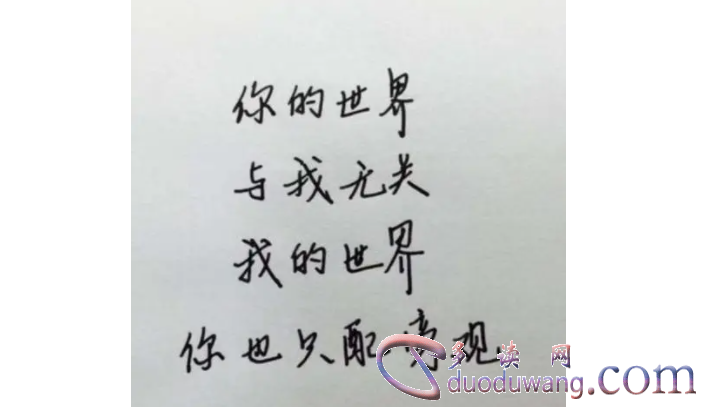 你的世界
与我无关
我的世界
你也只配旁观
多读网
duoduwang.com